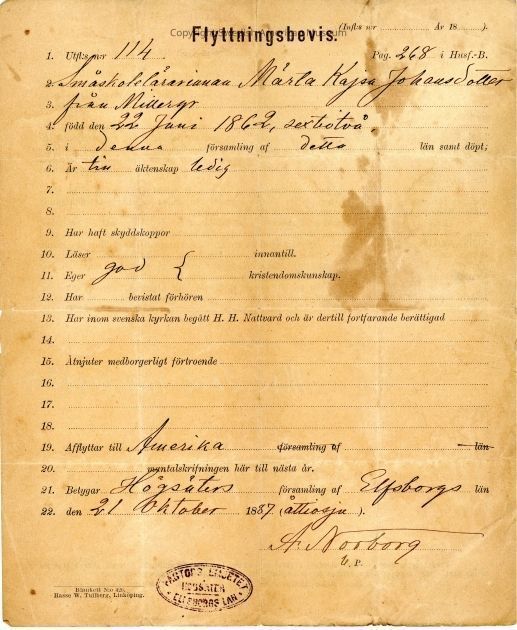 (Inflks nr År 18 ).
Flyttningsbevis.
1. Utflks nr 114 Pag. 268 i Husf.-B.
2. Småskolelärarinnan Märta Kajsa Johansdotter
3. från
4. född den 22 Juni 1862, sextiotvå,
5. i denna församling af detta län samt döpt;
6. Är till äktenskap ledig
7.
8.
9. Har haft skyddskoppor
10. Läser innantill.
11. Eger god { kristendomskunskap.
12. Har bevistat förhören
13. Har inom svenska kyrkan begått H. H. Nattvard och är dertill fortfarande berättigad
14.
15. Åtnjuter medborgerligt förtroende
16.
17.
18.
19. Afflyttar till Amerika församling af län
20. mantalskrifningen här till nästa år.
21. Betygar Högsäters församling af Elfsborgs län
22. den 21 Oktober 1887 (åttiosju).
A. Norborg
P.
PASTORS EMBETET
HÖGSÄTER
ELFSBORGS LÄN
Blankett No 420.
Hasse W. Tullberg, Linköping.